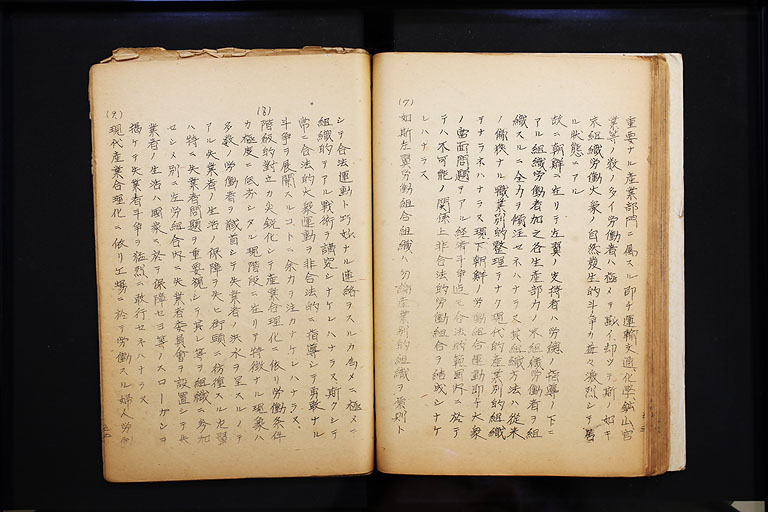 重要ナル産業部門ニ属スル即チ運輸交通化学鉱山官
業等ノ数ノ多イ労働者ハ極メテ尠イ却ツテ斯ノ如キ
未組織労働大衆ノ自然発生的斗争カ益々激烈シテ
ル状態ニアル
故ニ朝鮮ニ在リテ左翼ノ支持者ハ労総ノ指導ノ下ニ
アル組織労働者加之各生産部カノ未組織労働者ヲ組
織スルニ全力ヲ傾注セネハナラス其組織方法ハ従来
ノ個条ナル職業別的整理テナク現代的産業別的組織
テナラネハナラス現下朝鮮ノ労働組合運動即チ大衆
ノ当面問題テアル経済斗争迄モ合法的範囲内ニ於テ
テハ不可能ノ関係上非合法的労働組合ヲ結成シナケ
レハナラス
(7)
如斯左翼労働組合組織ハ勿論産業別的組織ヲ原則ト
シテ合法運動ト巧妙ナル連絡ヲスルカ為メニ極メテ
組織的テアル戦術ヲ講究シナケレハナラス斯クシテ
常ニ合法的大衆運動ヲ非合法的ニ指導シテ勇敢ナル
斗争ヲ展開スルコトニ余力ヲ注カナケレハナラス、
(8)
階級的対立カ尖鋭化シテ産業合理化ニ依リ労働条件
カ極度ニ低劣シタル現階段ニ在リテ特徴ナル現象ハ
多数ノ労働者ヲ馘首シテ失業者ノ洪水ヲ呈スルノテ
アル失業者ノ生活ノ保障ヲ失ヒ街頭ニ彷復スル左翼
ハ特ニ失業者問題ヲ重要視シテ其レ等ヲ組織ニ参加
セシメ別ニ左労組合内ニ失業者委員会ヲ設置シテ失
業者ノ生活ハ国家ニ於テ保障セヨ等ノスローガンヲ
掲ケテ失業者斗争ヲ猛烈ニ敢行セネハナラス
(9)
現代産業合理化ニ依リ工場ニ於テ労働スル婦人労働